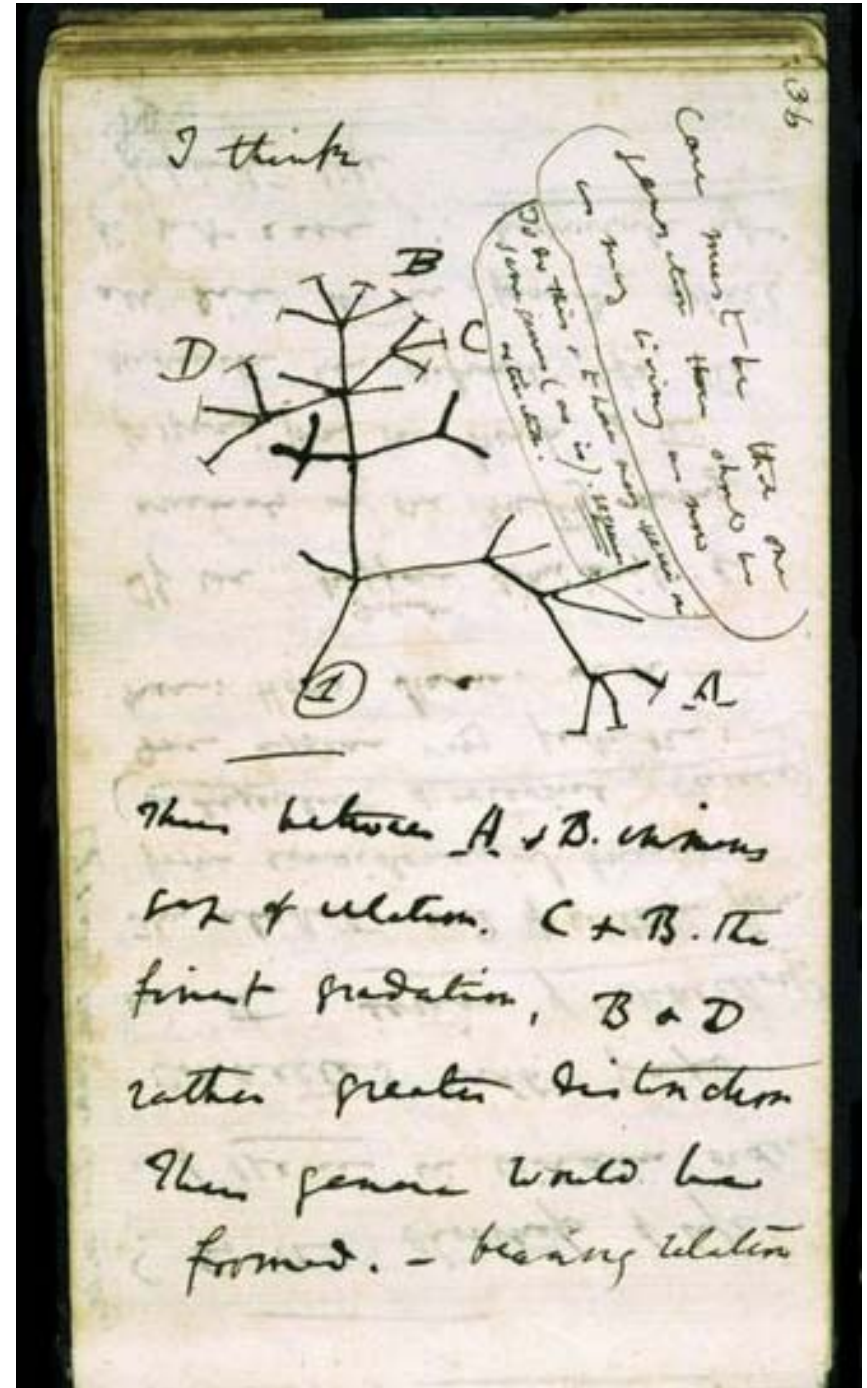 36
I think
B
D
C
Case must be that one
generation then should be
as many living as now
To do this & to have many species in
same genus (as is). requires
extinction.
1
A
Thus between A & B. immense
gap of relation. C & B. the
finest gradation, B & D
rather greater distinction
Thus genera would be
formed. — bearing relation